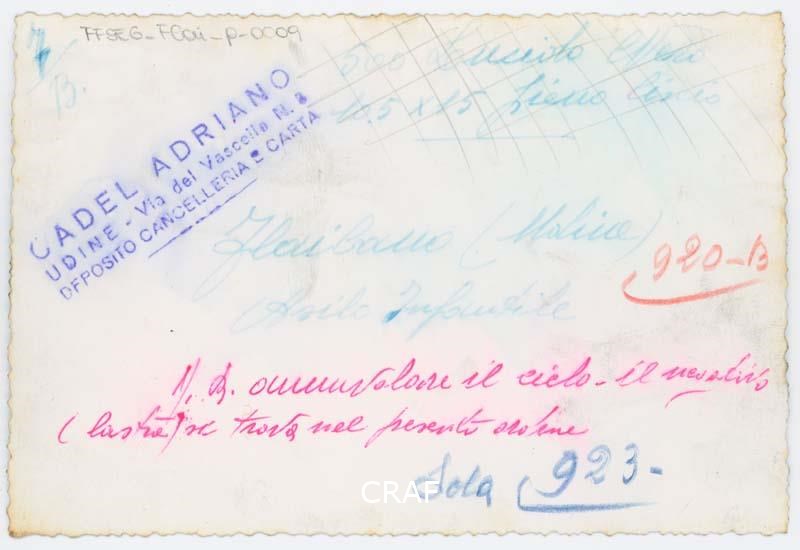 FFSEG-Flai-p-0009
B.
500 Lucido
10.5 x 15 Liscio
CADEL ADRIANO
UDINE - Via del Vascello N. 3
DEPOSITO CANCELLERIA E CARTA
Flaibano (Udine)
Asilo Infantile
920-B
N. B. annuvolare il cielo - il negativo
(lastra) si trova nel presente ordine
923-
CRAF